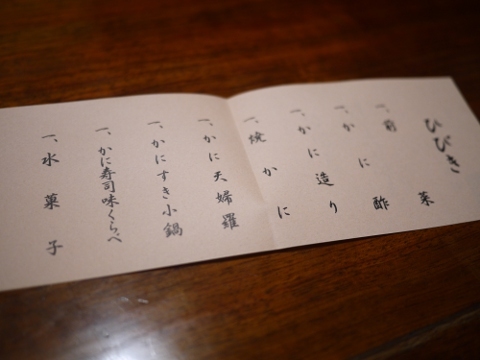 ひびき
一、前菜
一、かに酢
一、かに造り
一、焼かに
一、かに天婦羅
一、かにすき小鍋
一、かに寿司味くらべ
一、水菓子